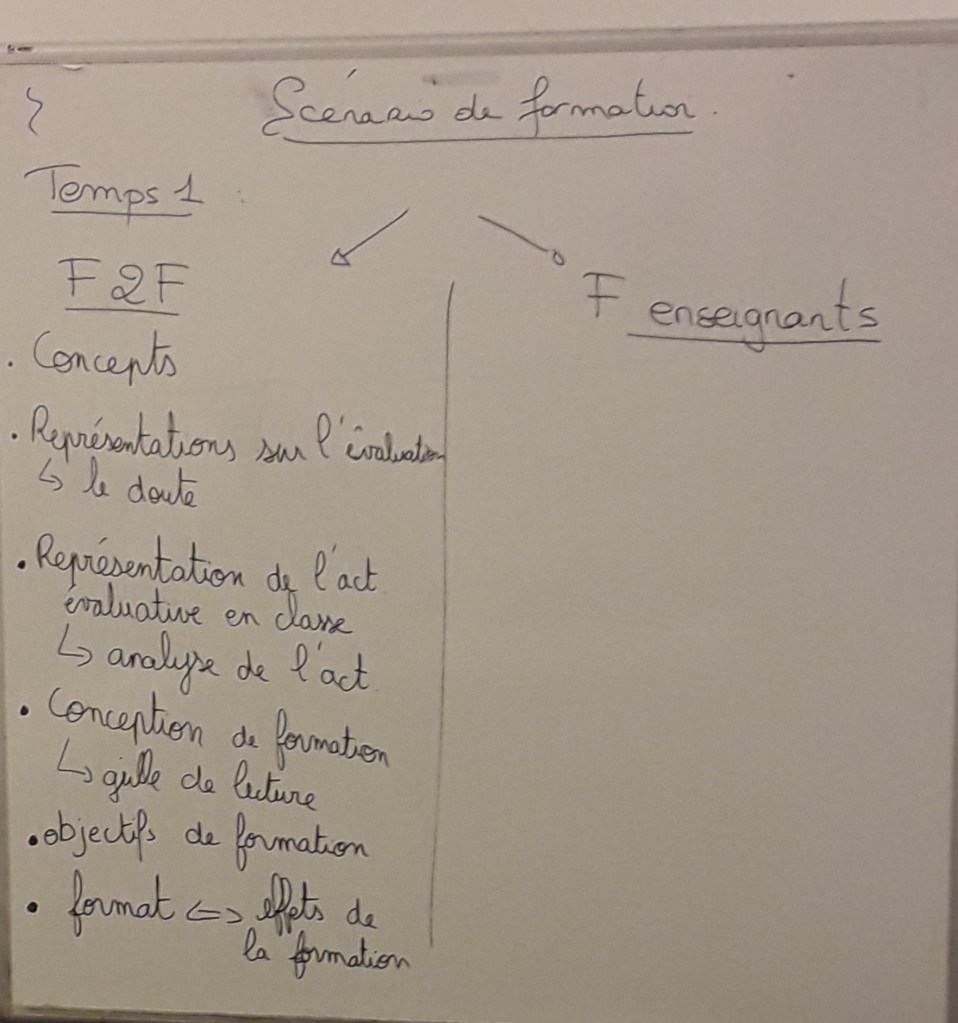 Scénario de formation.
Temps 1 :
F2F
F enseignants
. Concepts
. Représentations sur l'évaluation
↳ le doute
. Représentation de l'act
évaluative en classe
↳ analyse de l'act.
. Conception de formation
↳ grille de lecture
. objectifs de formation
. format <=> effets de
la formation